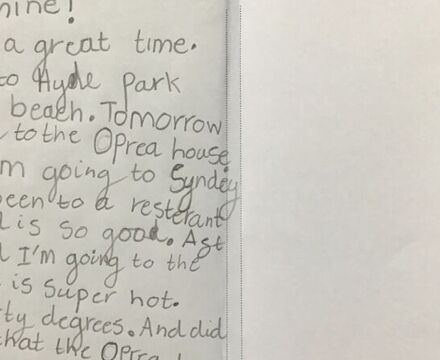 nine!
a great time.
to Hyde park
beach. Tomorrow
to the Oprea house
m going to Syndey
een to a resterant
l is so good. Ast
l I'm going to the
is super hot.
ty degrees. And did
that the Oprea